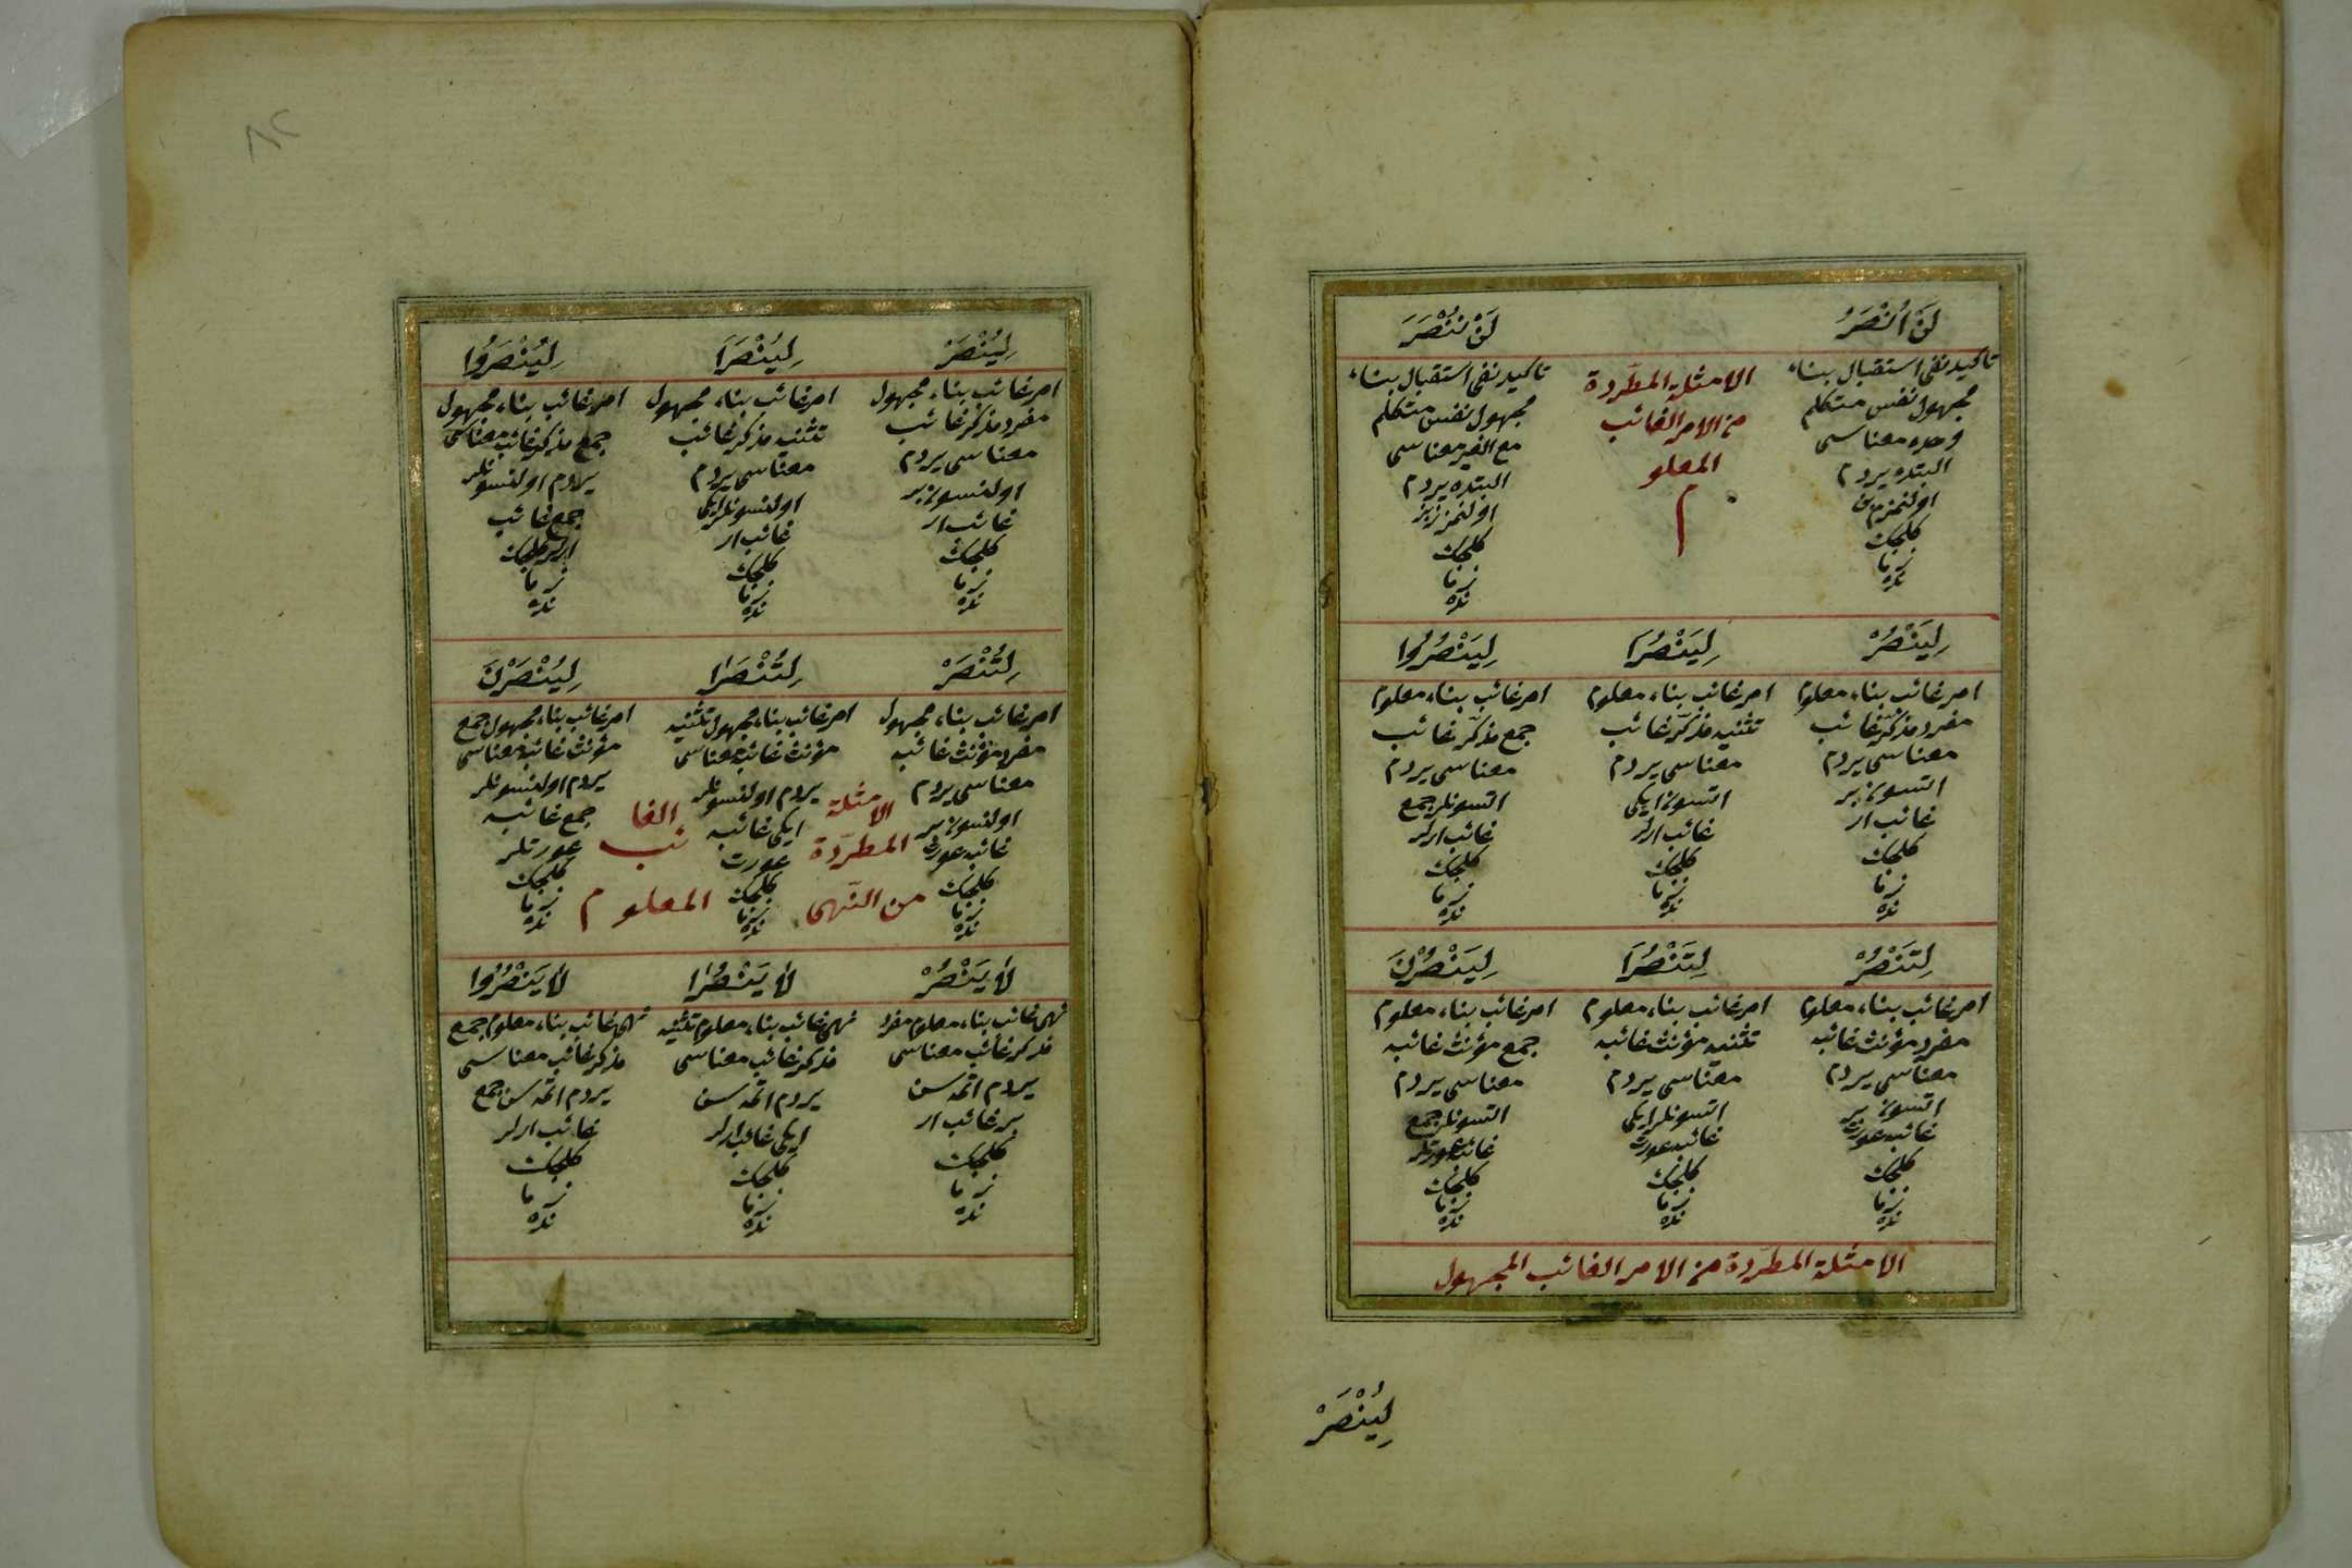 لَنْ اُنْصَرَ
تاكيد نفى استقبال بناء
مجهول نفس متكلم
وحده معناسى
البتده يردم
اولنمزم بن
كلجك
زما
نده
الامثلة المطّردة
من الامر الغائب
المعلو
م
لَنْ نُنْصَرَ
تاكيد نفى استقبال بناء
مجهول نفس متكلم
مع الغير معناسى
البتده يردم
اولنمزز بز
كلجك
زما
نده
لِيَنْصُرْ
امر غائب بناء معلوم
مفرد مذكر غائب
معناسى يردم
اتسون بر
غائب ار
كلجك
زما
نده
لِيَنْصُرَا
امر غائب بناء معلوم
تثنيه مذكر غائب
معناسى يردم
اتسون ايكى
غائب ارلر
كلجك
زما
نده
لِيَنْصُرُوا
امر غائب بناء معلوم
جمع مذكر غائب
معناسى يردم
اتسونلر جمع
غائب ارلر
كلجك
زما
نده
لِتَنْصُرْ
امر غائب بناء معلوم
مفرد مؤنث غائبه
معناسى يردم
اتسون بر
غائبه عورت
كلجك
زما
نده
لِتَنْصُرَا
امر غائب بناء معلوم
تثنيه مؤنث غائبه
معناسى يردم
اتسونلر ايكى
غائبه عورت
كلجك
زما
نده
لِيَنْصُرْنَ
امر غائب بناء معلوم
جمع مؤنث غائبه
معناسى يردم
اتسونلر جمع
غائبه عورتلر
كلجك
زما
نده
الامثلة المطّردة من الامر الغائب المجهول
لِيُنْصَرْ
٨٢
لِيُنْصَرْ
امر غائب بناء مجهول
مفرد مذكر غائب
معناسى يردم
اولنسون بر
غائب ار
كلجك
زما
نده
لِيُنْصَرَا
امر غائب بناء مجهول
تثنيه مذكر غائب
معناسى يردم
اولنسونلر ايكى
غائب ار
كلجك
زما
نده
لِيُنْصَرُوا
امر غائب بناء مجهول
جمع مذكر غائب معناسى
يردم اولنسونلر
جمع غائب
ارلر كلجك
زما
نده
لِتُنْصَرْ
امر غائب بناء مجهول
مفرد مؤنث غائبه
معناسى يردم
اولنسون بر
غائبه عورت
كلجك
زما
نده
لِتُنْصَرَا
امر غائب بناء مجهول تثنيه
مؤنث غائبه معناسى
يردم اولنسونلر
ايكى غائبه
عورت
كلجك
زما
نده
لِيُنْصَرْنَ
امر غائب بناء مجهول جمع
مؤنث غائبه معناسى
يردم اولنسونلر
جمع غائبه
عورتلر
كلجك
زما
نده
الامثلة الغا
المطّردة ئب
من النّهى المعلوم
لَا يَنْصُرْ
نهى غائب بناء معلوم مفرد
مذكر غائب معناسى
يردم اتمه سن
بر غائب ار
كلجك
زما
نده
لَا يَنْصُرَا
نهى غائب بناء معلوم تثنيه
مذكر غائب معناسى
يردم اتمه سن
ايكى غائب ارلر
كلجك
زما
نده
لَا يَنْصُرُوا
نهى غائب بناء معلوم جمع
مذكر غائب معناسى
يردم اتمه سن جمع
غائب ارلر
كلجك
زما
نده